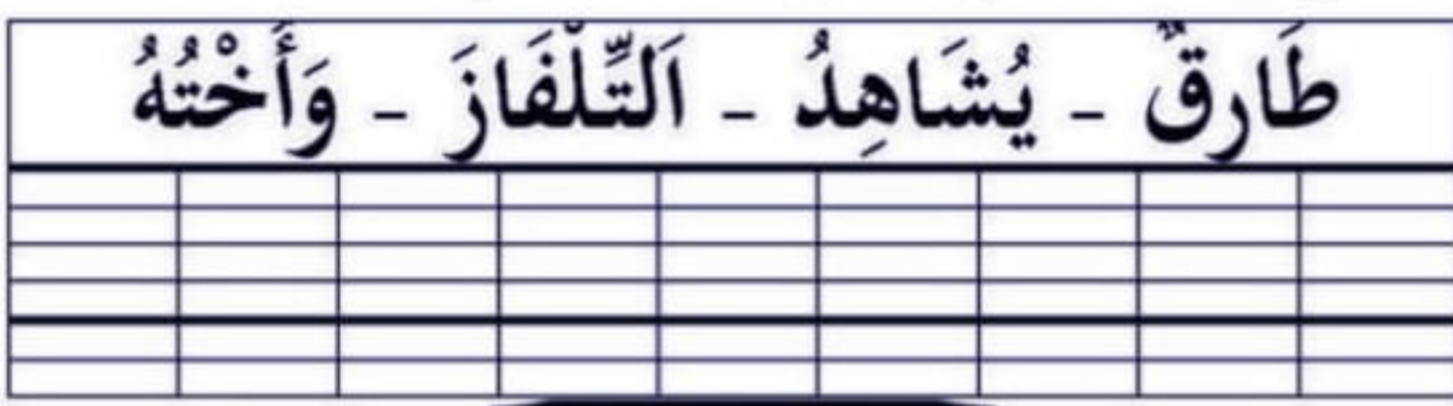 طَارِقٌ - يُشَاهِدُ - اَلتِّلْفَازَ - وَأَُخْتُهُ